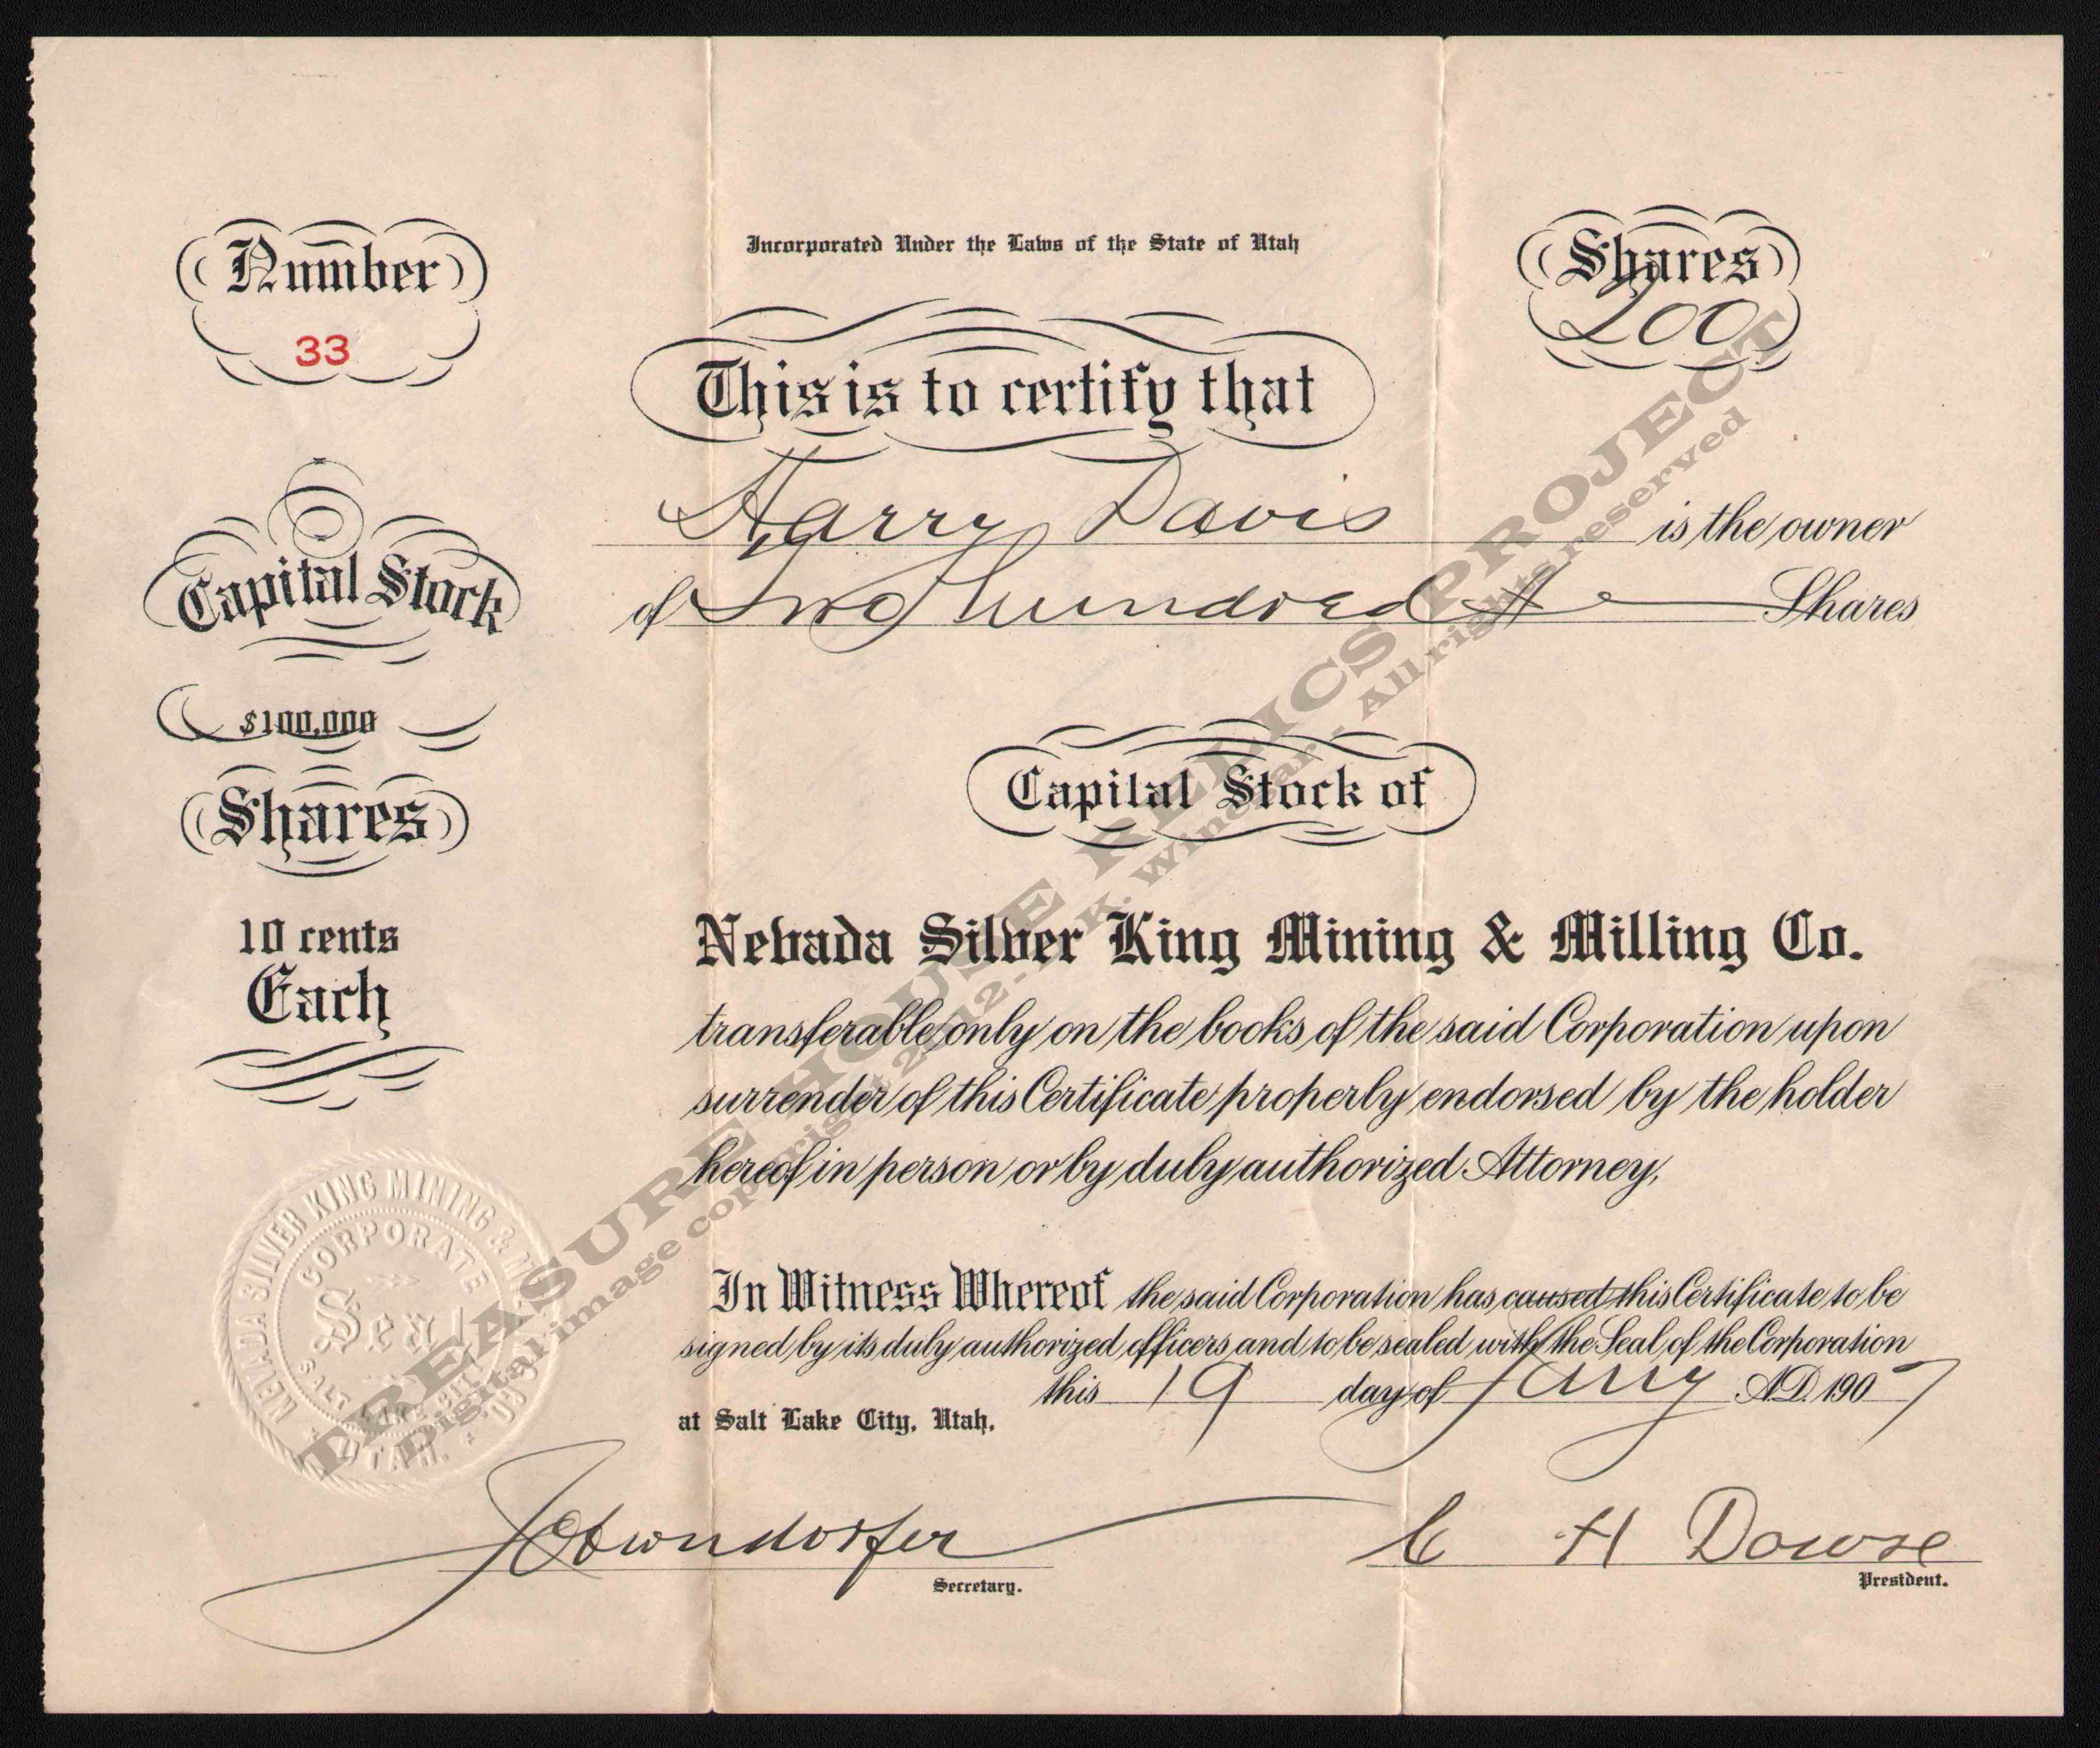 Number
33
Incorporated Under the Laws of the State of Utah
Shares
200
This is to certify that
Harry Davis is the owner
of Two hundred Shares
Capital Stock
$100,000
Shares
10 cents
Each
Capital Stock of
Nevada Silver King Mining & Milling Co.
transferable only on the books of the said Corporation upon
surrender of this Certificate properly endorsed by the holder
hereof in person or by duly authorized Attorney,
In Witness Whereof the said Corporation has caused this Certificate to be
signed by its duly authorized officers and to be sealed with the Seal of the Corporation
this 19 day of Jany A.D. 1907
at Salt Lake City, Utah.
NEVADA SILVER KING MINING & MILLING CO.
CORPORATE
Seal
SALT LAKE CITY
UTAH.
Secretary.
C H Dowse
President.
TREASURE HOUSE RELICS PROJECT
Digital image copyright 2012 - K. Windsor - All rights reserved